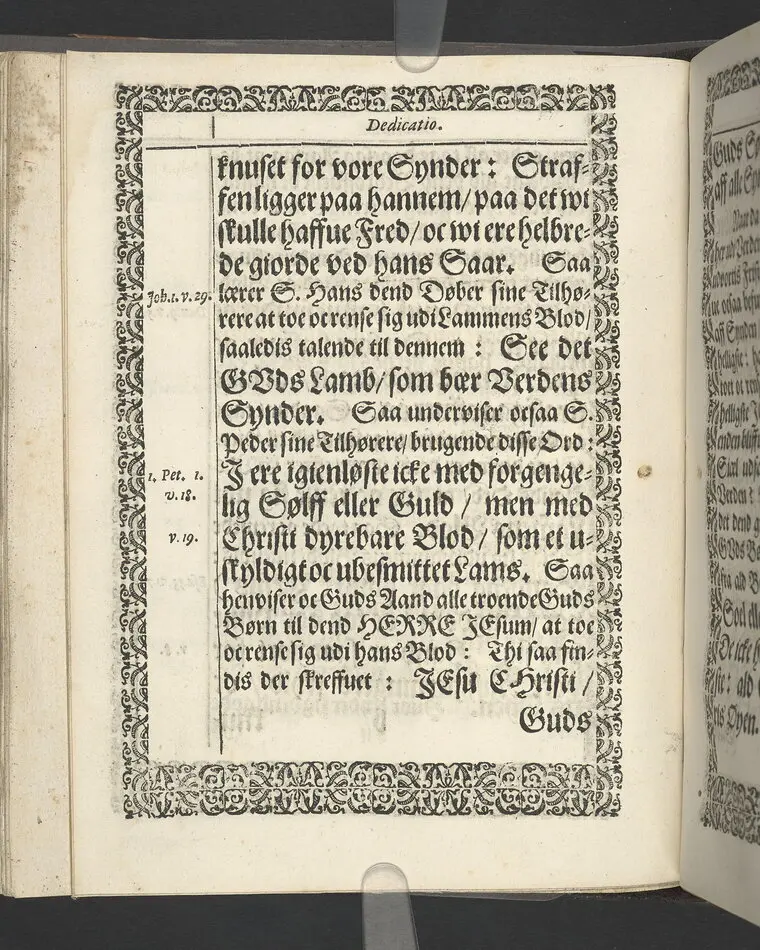 Dedicatio.
knuset for vore Synder: Straf-
fen ligger paa hannem/ paa det wi
skulle haffue Fred/ oc wi ere helbre-
de giorde ved hans Saar. Saa
Joh. 1. v. 29.
lærer S. Hans dend Døber sine Tilhø-
rere at toe oc rense sig udi Lammens Blod/
saaledis talende til dennem: See det
GVds Lamb/ som bær Verdens
Synder. Saa underviser ocsaa S.
Peder sine Tilhørere/ brugende disse Ord:
1. Pet. 1.
v. 18.
J ere igienløste icke med forgenge-
lig Sølff eller Guld / men med
v. 19.
Christi dyrebare Blod / som et u-
skyldigt oc ubesmittet Lams. Saa
henviser oc Guds Aand alle troende Guds
Børn til dend HERRE JEsum/ at toe
oc rense sig udi hans Blod: Thi saa fin-
dis der skreffuet: JEsu CHristi /
Guds
Guds
aff alle